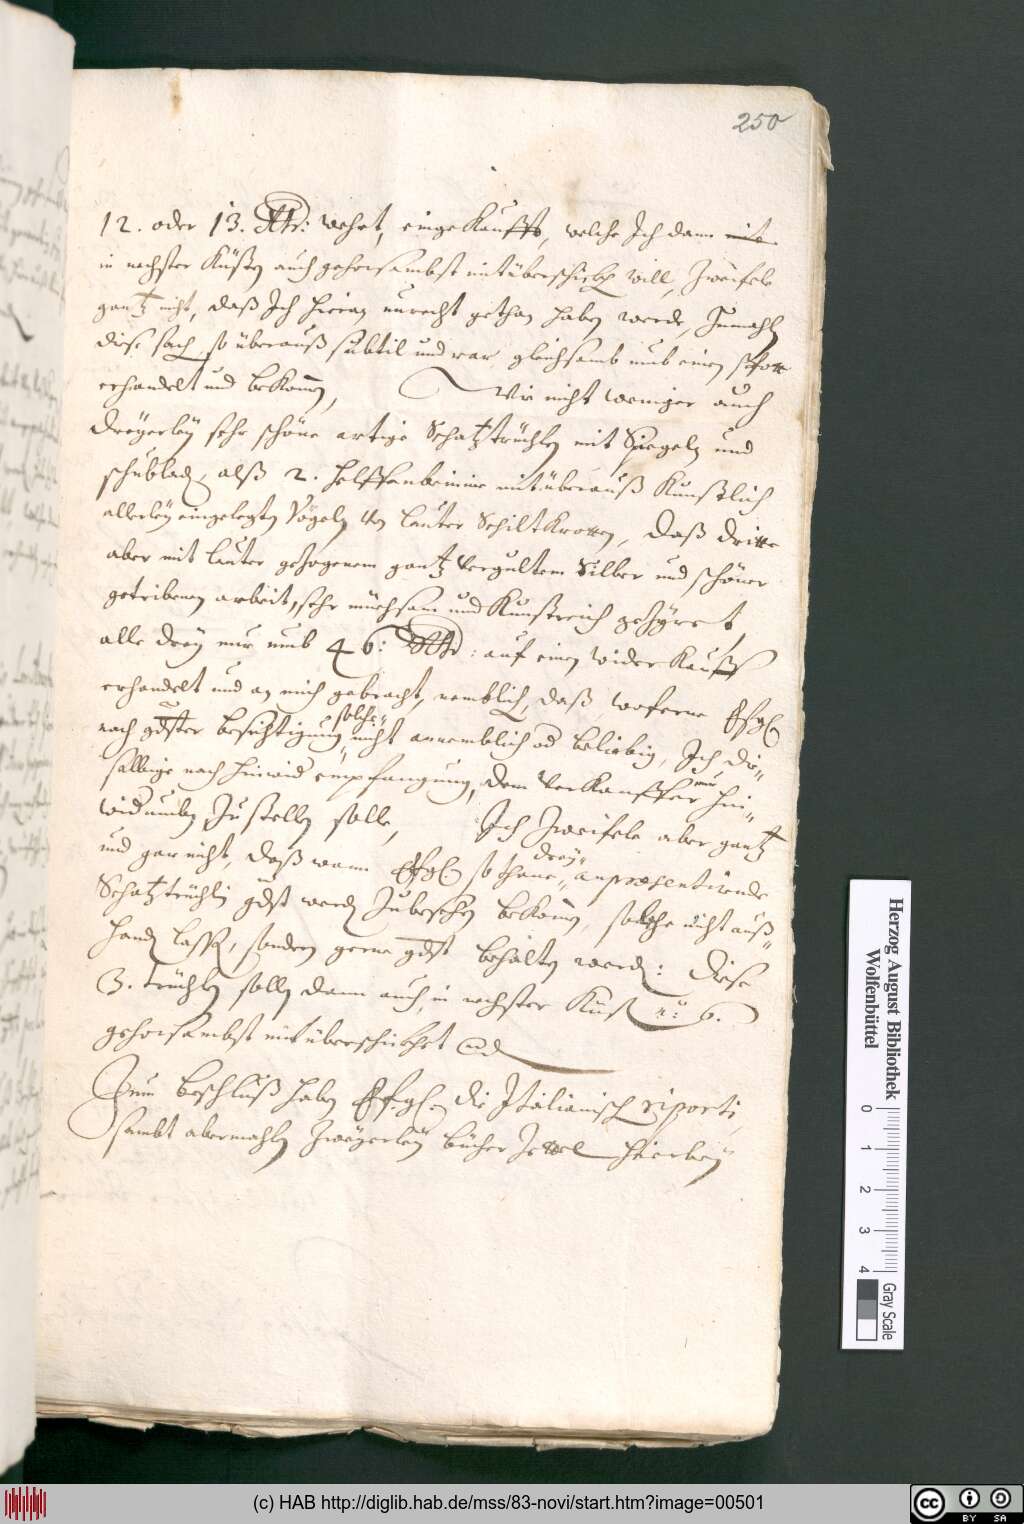 250
12. oder 13. Rthr: wehrt, eingekaufft, welche Ich dann mit
in nechster Küsten auch gehorsambst mit überschicken will, Zweifele
gantz nicht, daß Ich hieran unrecht gethan haben werde, Zumahln
diese sach so überauß subtil und rar, gleichsamb umb einen spott
erhandelt und bekommen, Wie nicht weniger auch
dreyerley sehr schöne artige Schatztrüchlen mit Spiegeln und
schubladen, alß 2. helffenbeinine mit überauß Kunstlich
allerley eingelegten Vögeln von lauter Schiltkrotten, daß dritte
aber mit lauter gezogenem gantz Vergultem Silber und schöner
getribenen arbeit, sehr mühsam und Kunstreich gezyret
alle drey nur umb 46: Rthr: auf einen widerkauff
erhandelt und an mich gebracht, nemblich, daß, woferne Efgl
nach gdster besichtigung solche nicht annemblich od beliebig, Ich die-
selbige nach hinwid empfangung, dem Verkauffer nur hin-
widumben Zustellen solle, Ich Zweifele aber gantz
und gar nicht, daß wann Efgl so thane drey anpræsentirende
Schatztrüchlin gdst werden Zubesehen bekommen, solche nicht auß
handen lassen, sondern gerne gdst behalten werden: Diese
3. trüchlen sollen dann auch in nechster Küst N: 6.
gehorsambst mit überschickt
Zum beschluß haben Efgl. die Italianisch riporti
sambt abermahlen Zweyerley bücher Zettel hierbey
Herzog August Bibliothek
Wolfenbüttel
0 1 2 3 4
Gray Scale
(c) HAB http://diglib.hab.de/mss/83-novi/start.htm?image=00501
cc BY SA